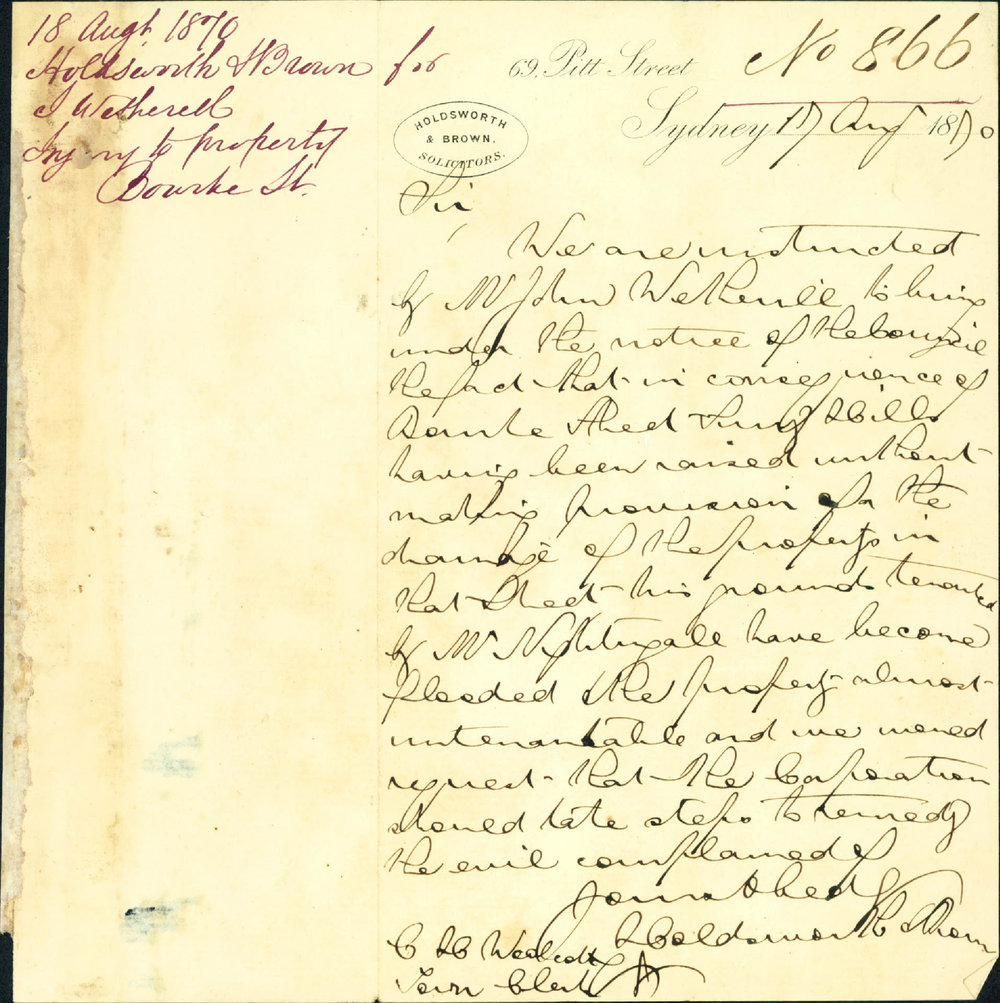 18 Augt. 1870
Holdsworth & Brown for
J Wetherell
Injury to property
Bourke St.
No 866
69, Pitt Street
Sydney 17 Aug 1870
HOLDSWORTH
& BROWN.
SOLICITORS.
Sir,
We are instructed
by Mr John Wetherill to bring
under the notice of the Council
the fact that in consequence of
Bourke Street Surry Hills
having been raised without
making provision for the
drainage of the property in
that Street his grounds tenanted
by Mr Nightingale have become
flooded & the property almost
untenantable and we would
request that the Corporation
should take steps to remedy
the evil complained of
Your obed
Holdsworth & Brown
C H Woolcott
Town Clerk